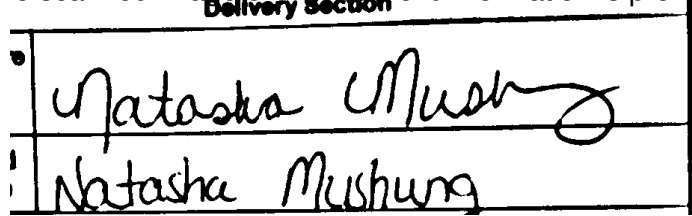 Delivery Section
Natasha Mush
Natasha Mushung